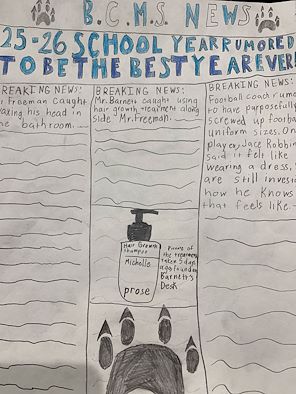 B.C.M.S. NEWS
25-26 SCHOOL YEAR RUMORED
TO BE THE BEST YEAR EVER!
BREAKING NEWS:
Freeman Caught
his head in
bathroom.
BREAKING NEWS:
Mr. Barnett caught using
hair growth treatment along
side Mr. Freeman.
Hair Growth
Shampoo
Michelle
prose
Picture of
the treatment
taken 5 days
ago found on
Barnett's
Desk
BREAKING NEWS:
Football coach
to have purposefully
screwed up
uniform sizes. On
player, Jace Robbin
said it felt like
wearing a dress,
are still invest
how he knows
that feels like.